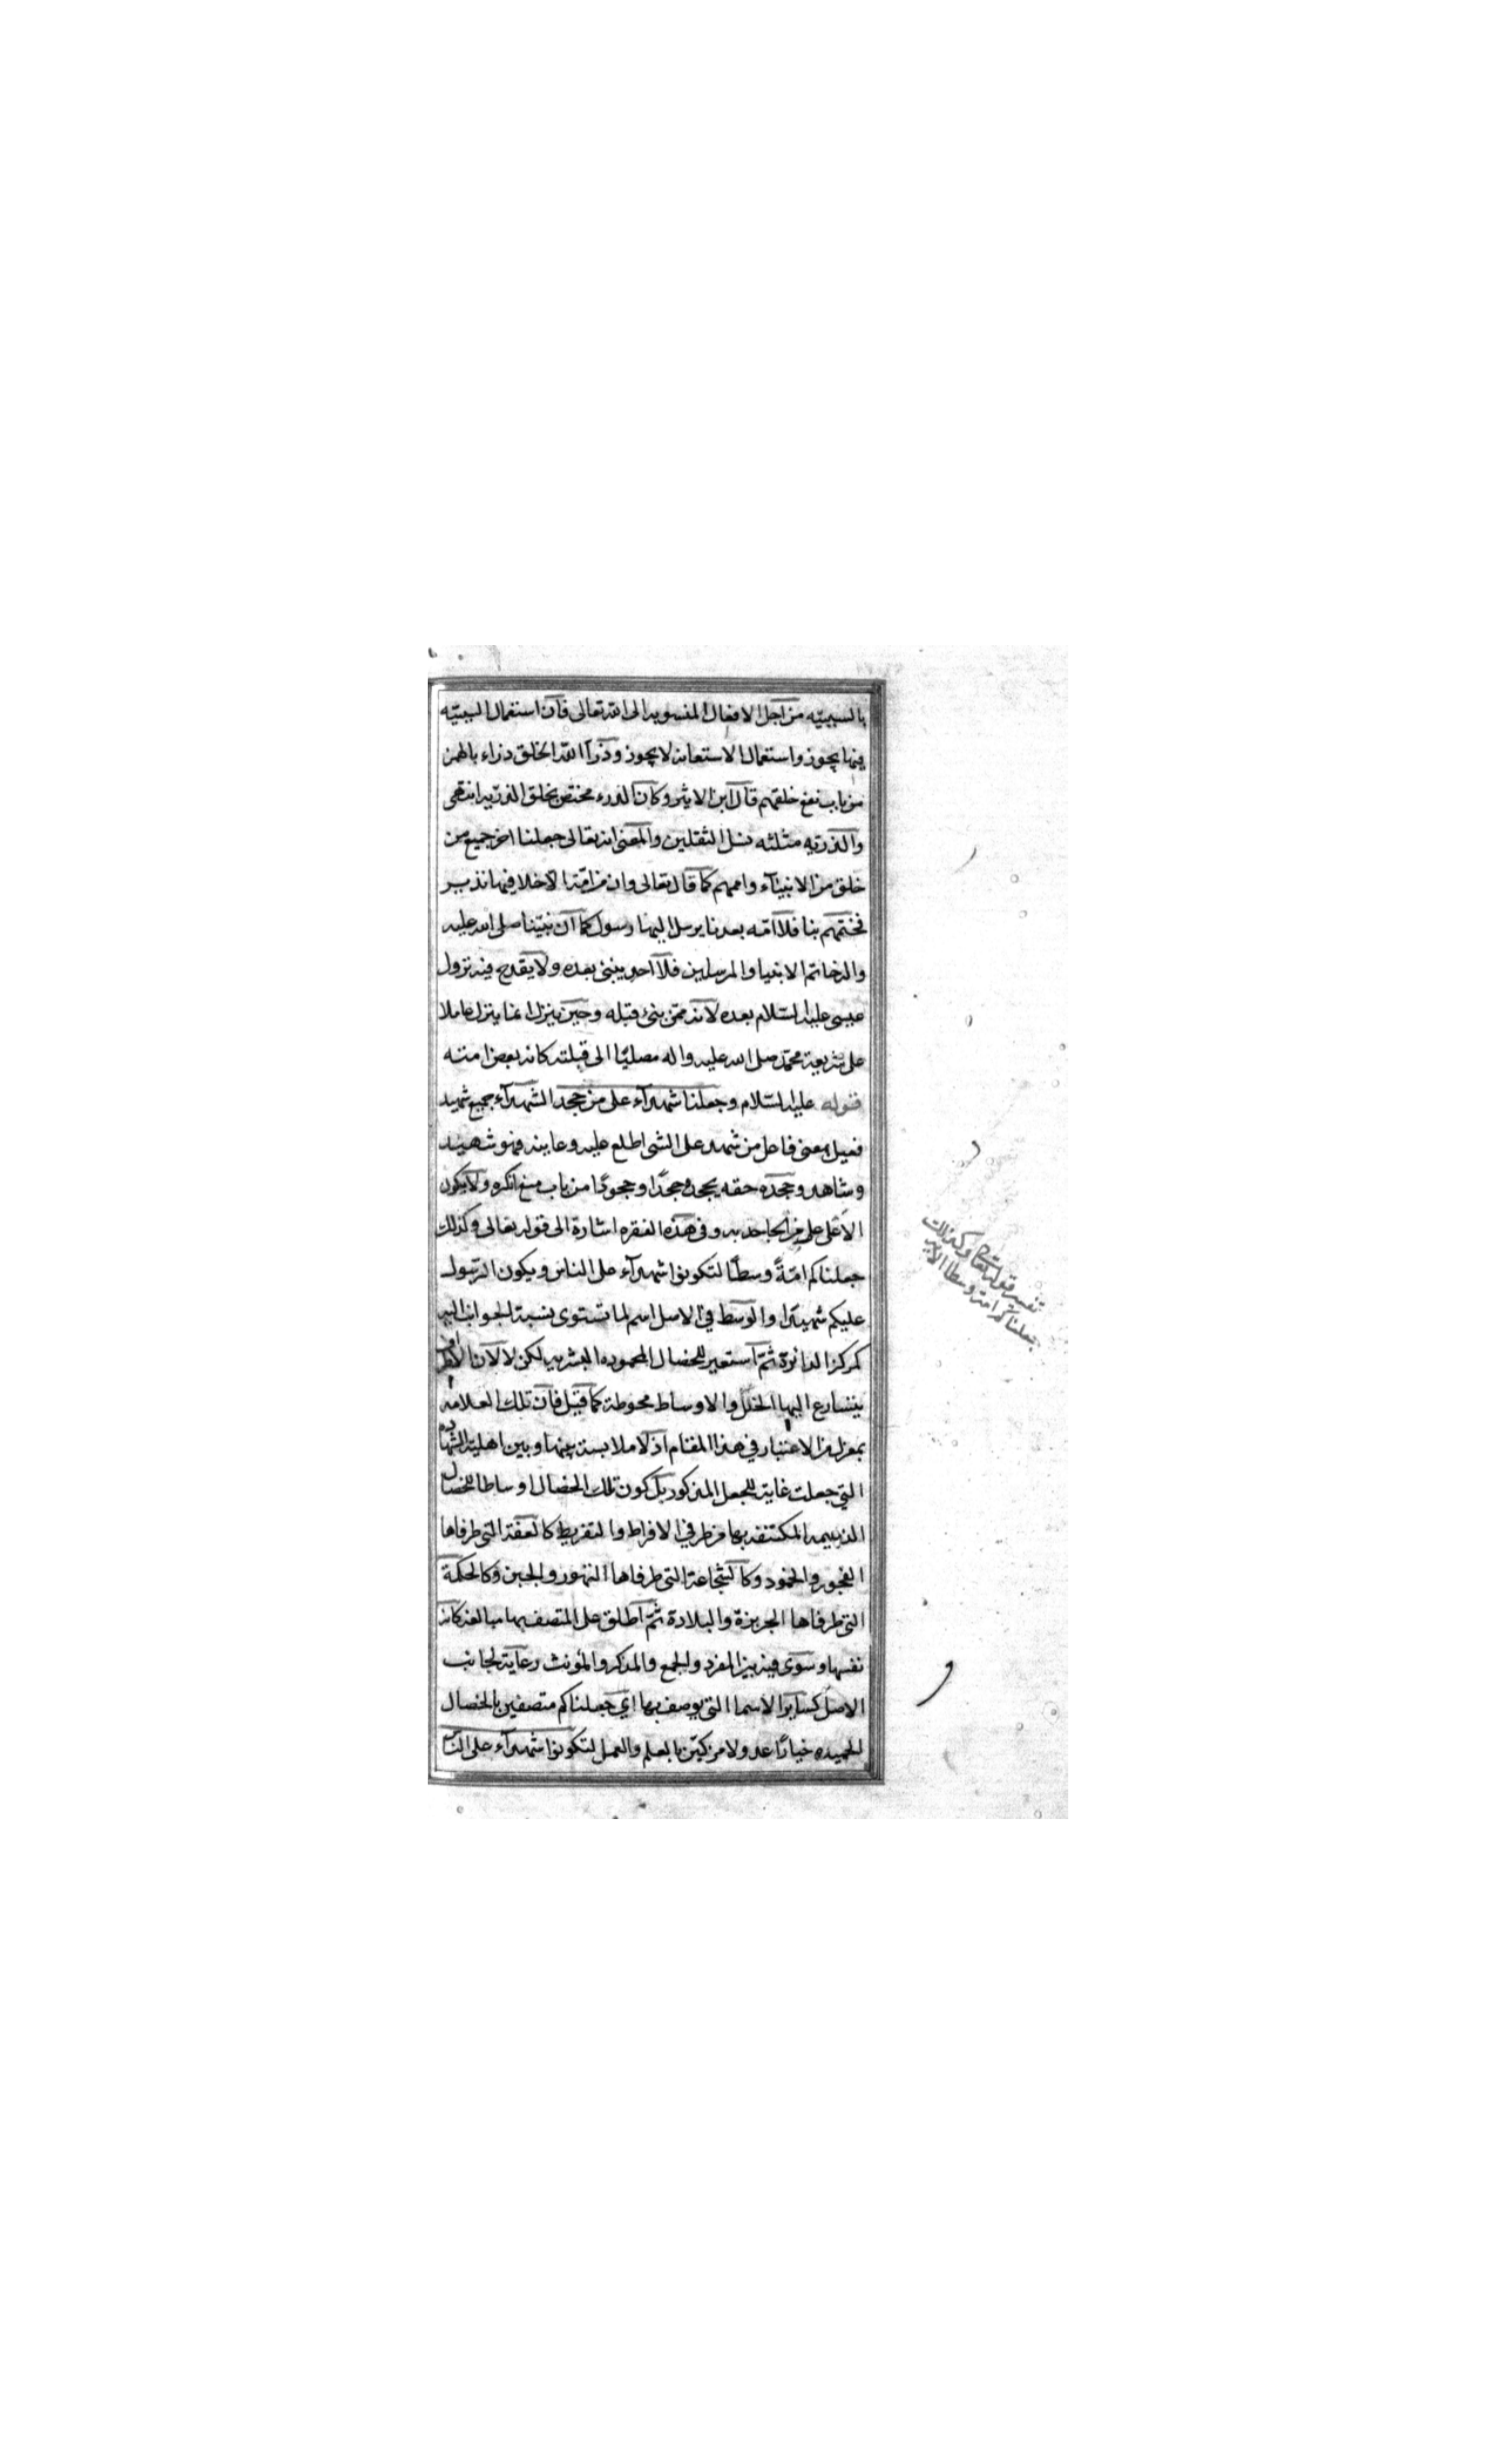 بالسببيّه من اجل الافعال المنسوبه الى الله تعالى فان استعمال السببيّه
فيها يجوز واستعمال الاستعانه لا يجوز وذرأ الله الخلق ذراء بالهمز
من باب نفع خلقهم قال ابن الاثير وكان الذرء مختص بخلق الذريه انتهى
والذريه مثلثه نسل الثقلين والمعنى انه تعالى جعلنا اخر جميع من
خلق من الانبيآء واممهم كما قال تعالى وان من امّة الا خلا فيها نذير
فختمهم بنا فلا امّه بعدنا يرسل اليها رسول كما ان نبيّنا صلى الله عليه
واله خاتم الانبيا والمرسلين فلا احد ينبئ بعده ولا يقدح فيه نزول
عيسى عليه السّلام بعده لانه ممّن نبئ قبله وحين ينزل انما ينزل عاملا
على شريعة محمّد صلى الله عليه واله مصليّا الى قبلته كانه بعض امته
قوله عليه السّلام وجعلنا شهدآء على من جحد الشهدآء جميع شهيد
فعيل بمعنى فاعل من شهد على الشي اطلع عليه وعاينه فهو شهيد
وشاهد وجحده حقه يجحده جحدًا وجحودًا من باب منع انكره ولا يكون
الا على علم من الجاحد به وفي هذه الفقره اشارة الى قوله تعالى وكذلك
جعلناكم امّةً وسطًا لتكونوا شهدآء على الناس ويكون الرّسول
عليكم شهيدًا والوسط في الاصل اسم لما تستوى نسبة الجوانب اليه
كمركز الدائرة ثمّ استعير للخصال المحموده البشريه لكن لا لان الاطراف
يتسارع اليها الخلل والاوساط محوطة كما قيل فان تلك العلامه
بمعزل من الاعتبار في هذا المقام اذ لا ملابسة بينها وبين اهلية الشهاده
التي جعلت غاية للجعل المذكور بل كون تلك الخصال اوساطا للخصال
الذميمه المكتنفه بها من طرفي الافراط والتفريط كالعفة التى طرفاها
الفجور والخمود وكالشجاعة التى طرفاها التهور والجبن وكالحكمة
التى طرفاها الجربزة والبلادة ثمّ اطلق على المتصف بها مبالغه كانه
نفسها وسوى فيه بين المفرد والجمع والمذكر والمؤنث رعاية لجانب
الاصل كساير الاسما التى يوصف بها اي جعلناكم متصفين بالخصال
الحميده خيارًا عدولا مزكيّن بالعلم والعمل لتكونوا شهدآء على النّاس
تفسير قوله تعالى وكذلك
جعلناكم امة وسطا الاية